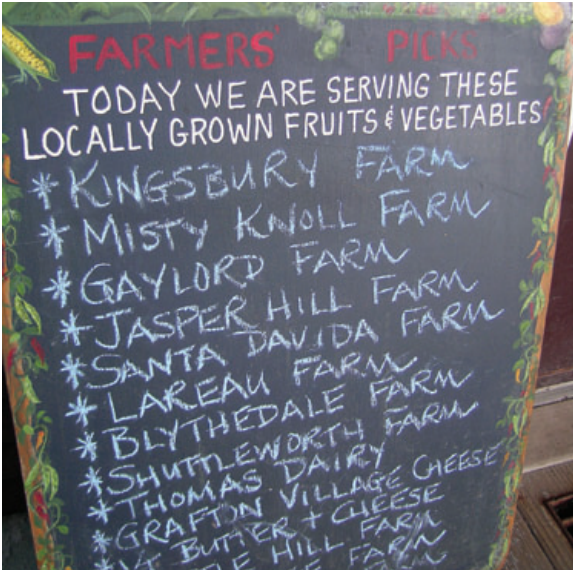 FARMERS' PICKS
TODAY WE ARE SERVING THESE
LOCALLY GROWN FRUITS & VEGETABLES
* KINGSBURY FARM
* MISTY KNOLL FARM
* GAYLORD FARM
* JASPER HILL FARM
* SANTA DAVIDA FARM
* LAREAU FARM
* BLYTHEDALE FARM
* SHUTTLEWORTH FARM
* THOMAS DAIRY
* GRAFTON VILLAGE CHEESE
* VT BUTTER + CHEESE
HILL FARM
FARM